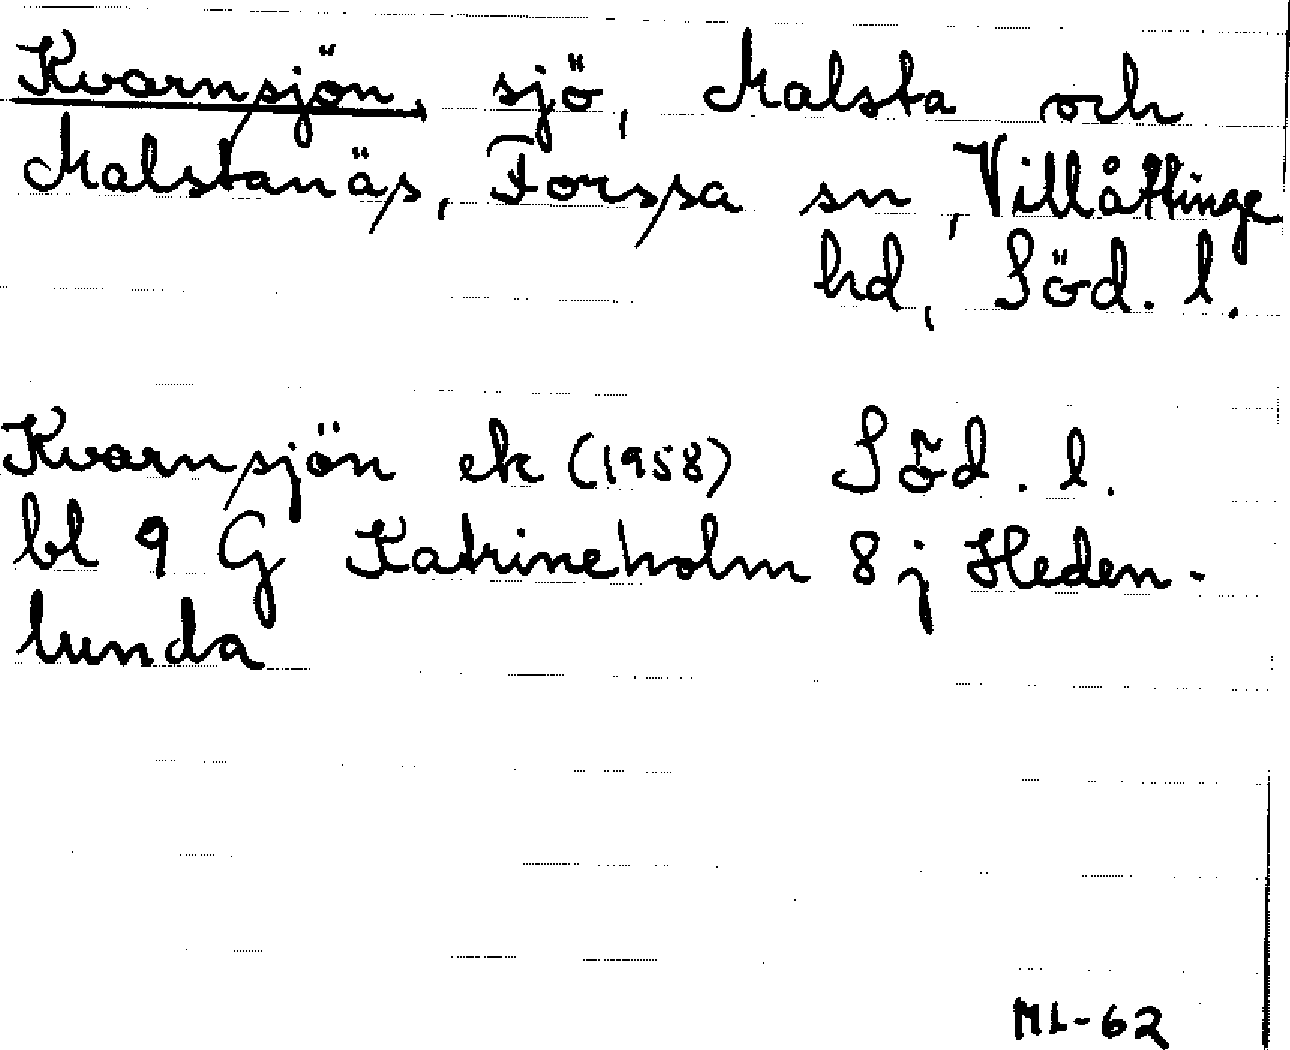 Kvarnsjön, sjö, Malsta och
Malstanäs, Forssa sn, Villåttinge
hd, Söd. l.
Kvarnsjön ek (1958) Söd. l.
bl 9 G Katrineholm 8 j Heden-
lunda
ML-62